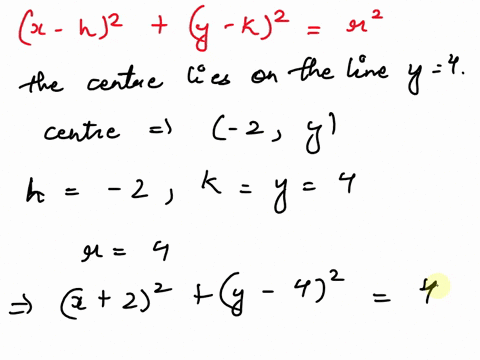 (x - h)² + (y - k)² = r²
the centre lies on the line y = 4.
centre ⇒ (-2, y)
h = -2, k = y = 4
r = 4
⇒ (x + 2)² + (y - 4)² = 4